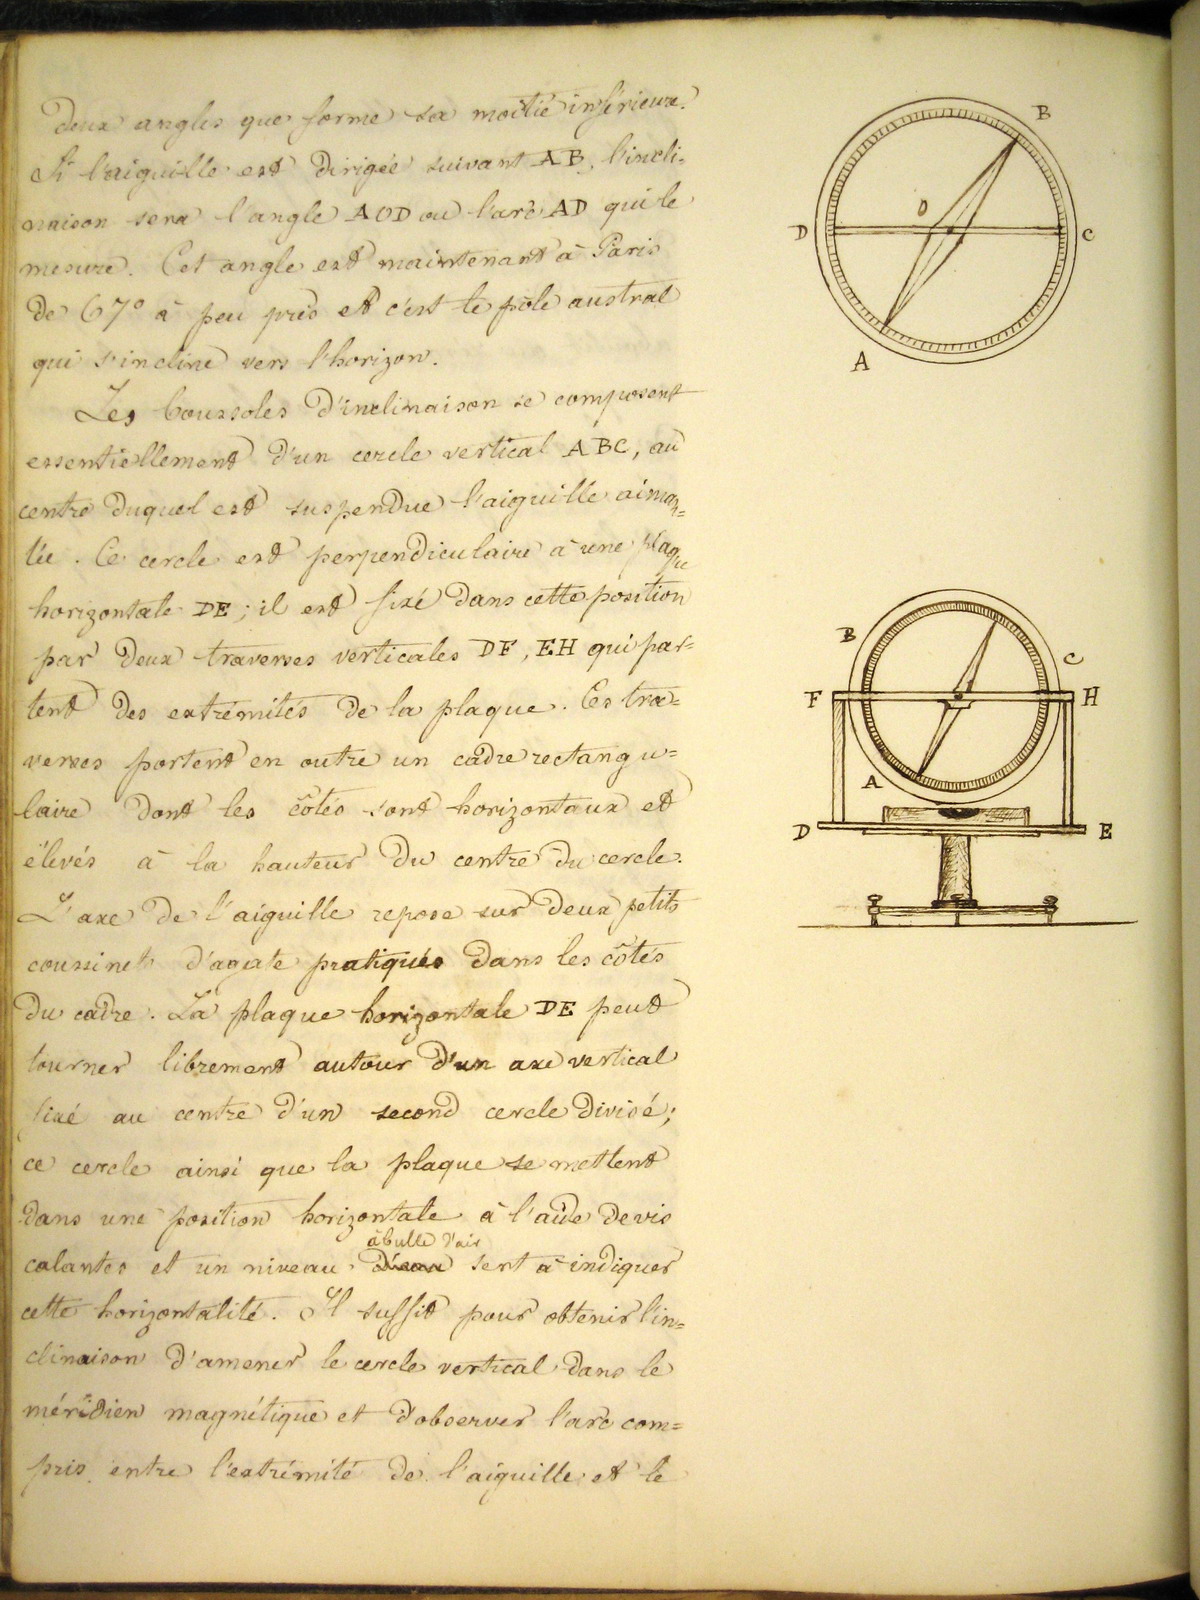 deux angles que forme sa moitié inférieure.
Si l'aiguille est dirigée suivant AB, l'incli-
naison sera l'angle AOD ou l'arc AD qui le
mesure. Cet angle est maintenant à Paris
de 67° à peu près et c'est le pôle austral
qui s'incline vers l'horizon.
Les boussoles d'inclinaison se composent
essentiellement d'un cercle vertical ABC, au
centre duquel est suspendue l'aiguille aiman=
tée. Ce cercle est perpendiculaire à une plaque
horizontale DE; il est fixé dans cette position
par deux traverses verticales DF, EH qui par=
tent des extrémités de la plaque. Ces tra=
verses portent en outre un cadre rectangu=
laire dont les côtés sont horizontaux et
élevés à la hauteur du centre du cercle.
L'axe de l'aiguille repose sur deux petits
coussinets d'agate pratiqués dans les côtés
du cadre. La plaque horizontale DE peut
tourner librement autour d'un axe vertical
fixé au centre d'un second cercle divisé;
ce cercle ainsi que la plaque se mettent
dans une position horizontale à l'aide de vis
à bulle d'air
calantes et un niveau d'eau sert à indiquer
cette horizontalité. Il suffit pour obtenir l'in=
clinaison d'amener le cercle vertical dans le
méridien magnétique et d'observer l'arc com=
pris entre l'extrémité de l'aiguille et le
B
O
D
C
A
B
C
F
H
A
D
E